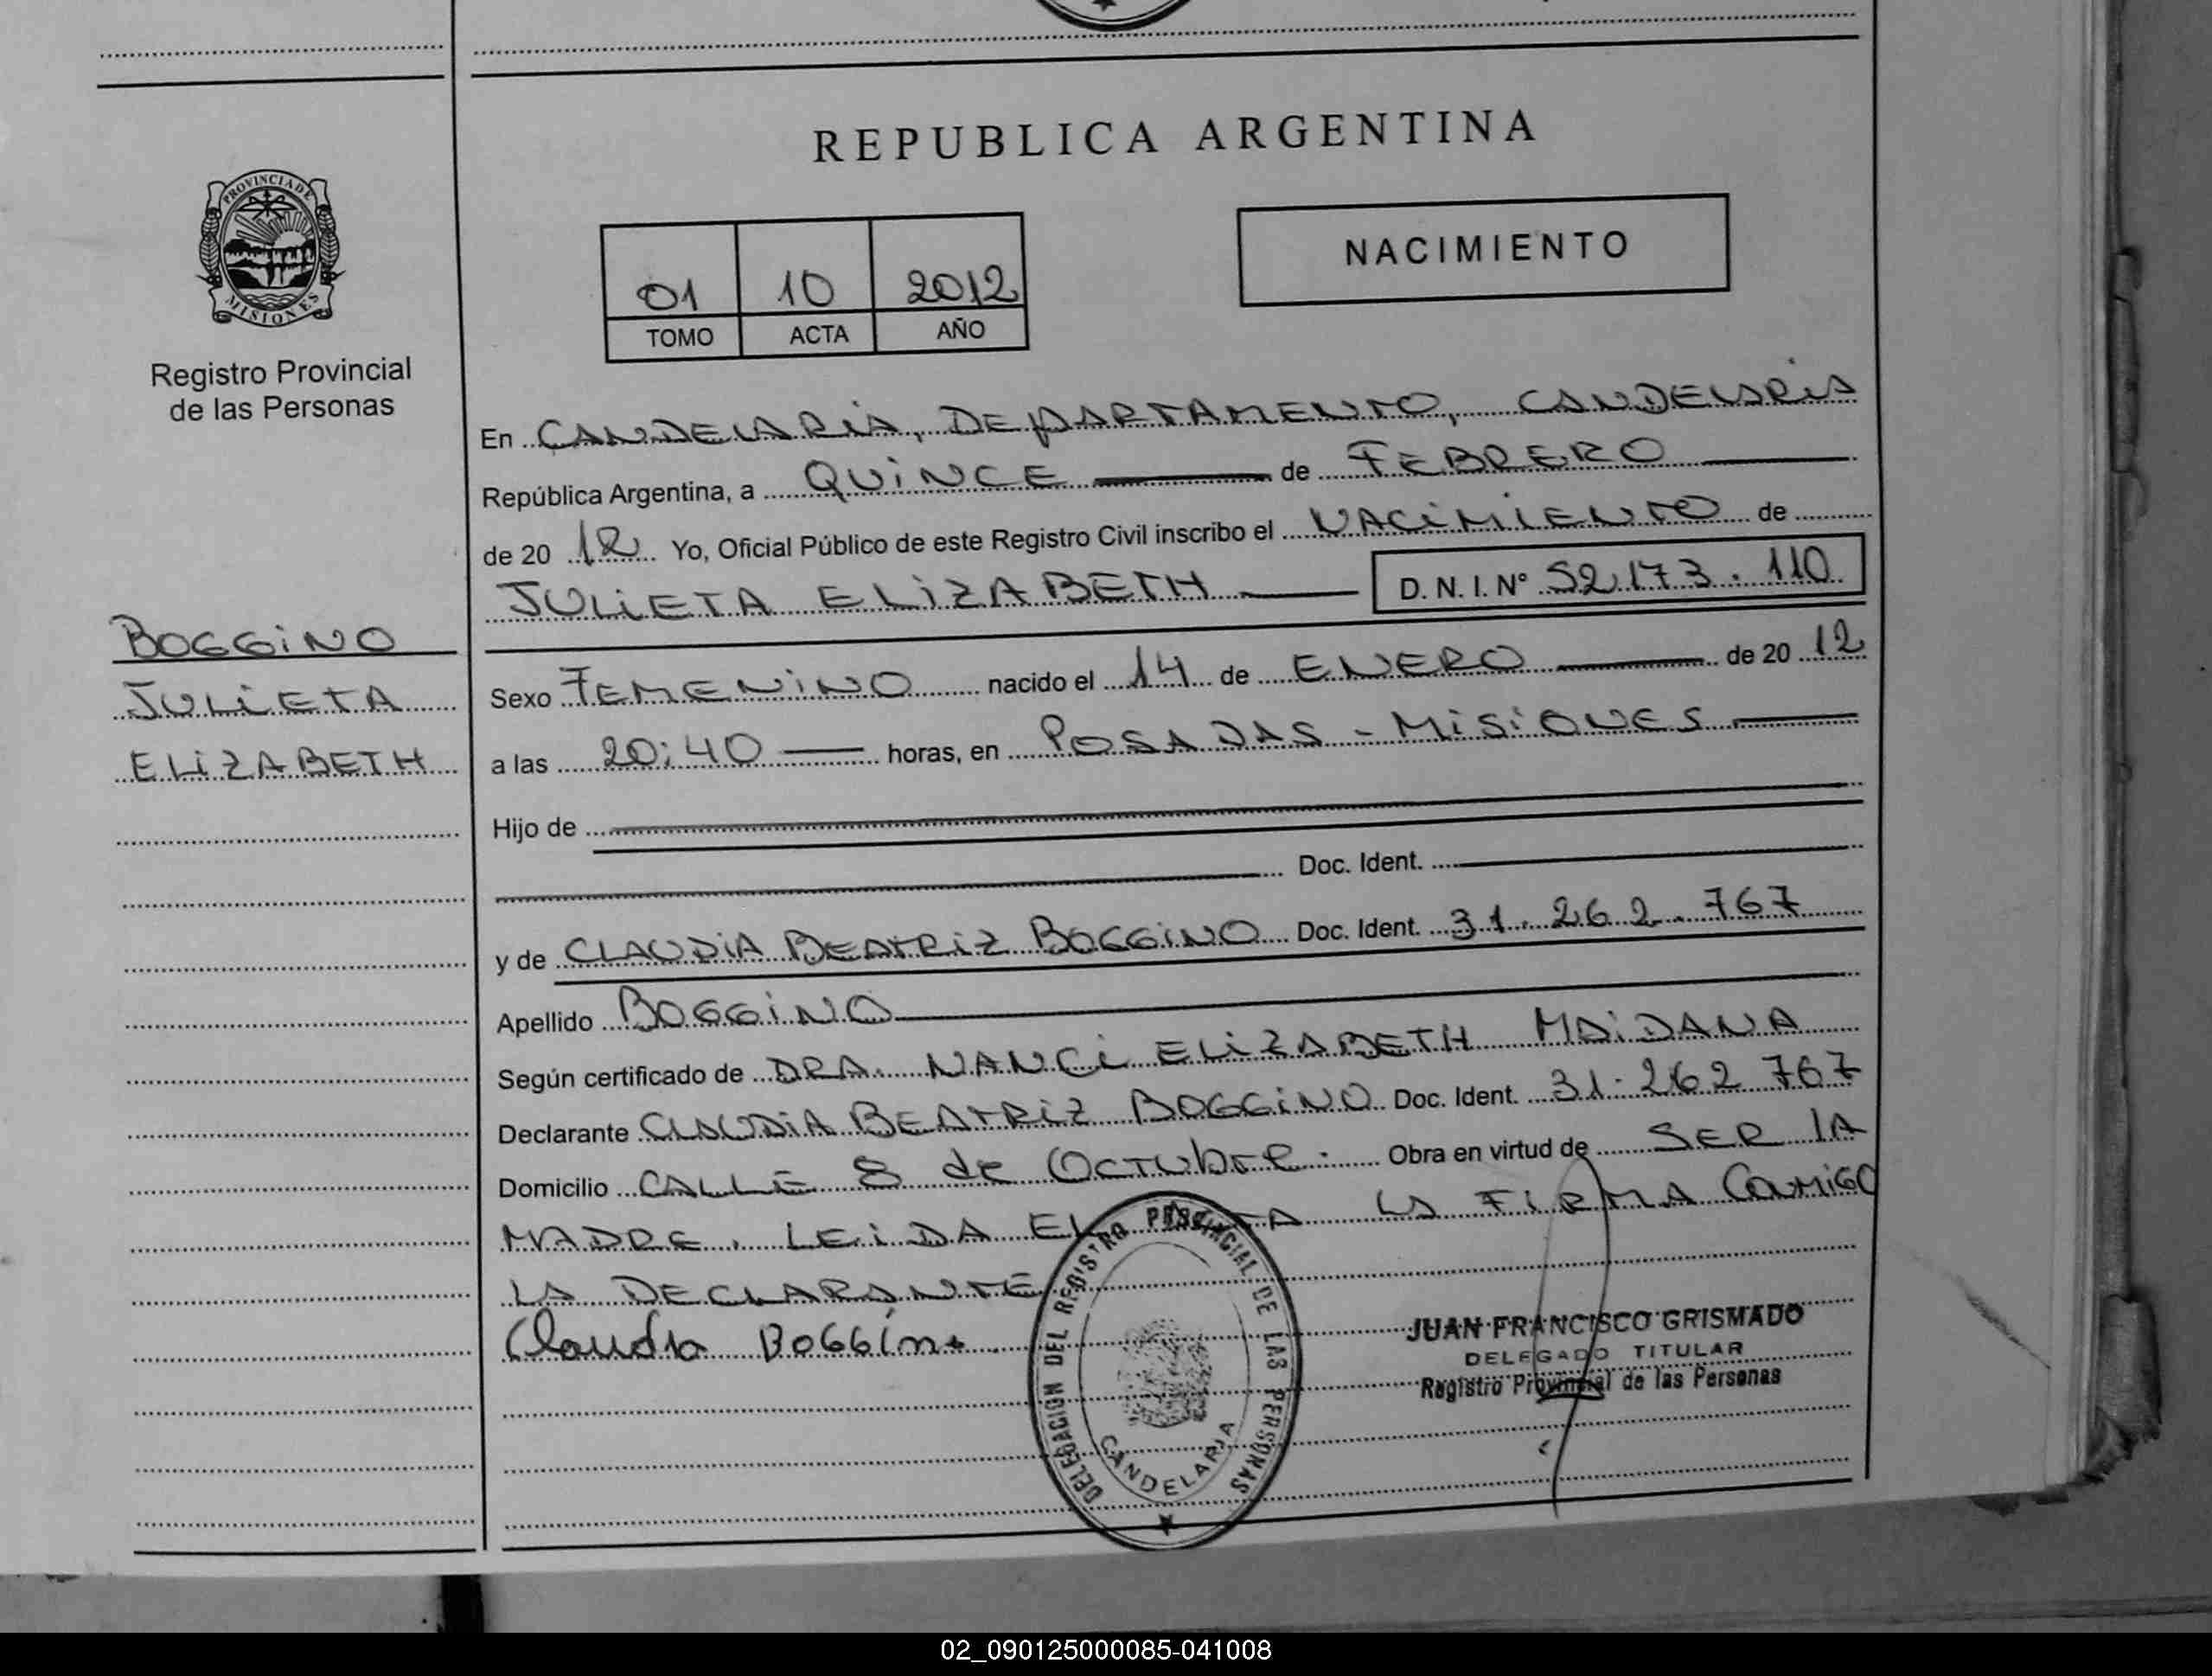 REPUBLICA ARGENTINA
PROVINCIA DE
MISIONES
Registro Provincial
de las Personas
01 10 2012
TOMO ACTA AÑO
NACIMIENTO
En CANDELARIA, DEPARTAMENTO, CANDELARIA
República Argentina, a QUINCE de FEBRERO
de 20 12 Yo, Oficial Público de este Registro Civil inscribo el NACIMIENTO de
JULIETA ELIZABETH D. N. I. Nº 52.173.110
BOGGINO
JULIETA
ELIZABETH
Sexo FEMENINO nacido el 14 de ENERO de 20 12
a las 20:40 horas, en POSADAS - MISIONES
Hijo de
Doc. Ident.
y de CLAUDIA BEATRIZ BOGGINO Doc. Ident. 31.262.767
Apellido BOGGINO
Según certificado de DRA. NANCI ELIZABETH MAIDANA
Declarante CLAUDIA BEATRIZ BOGGINO Doc. Ident. 31.262 767
Domicilio CALLE 8 de OCTUbre. Obra en virtud de SER LA
MADRE. LEIDA EL ACTA LA FIRMA CONMIGO
LA DECLARANTE
Claudia BOGGino
DELEGACION DEL REGISTRO PROVINCIAL DE LAS PERSONAS
CANDELARIA
JUAN FRANCISCO GRISMADO
DELEGADO TITULAR
Registro Provincial de las Personas
02_090125000085-041008